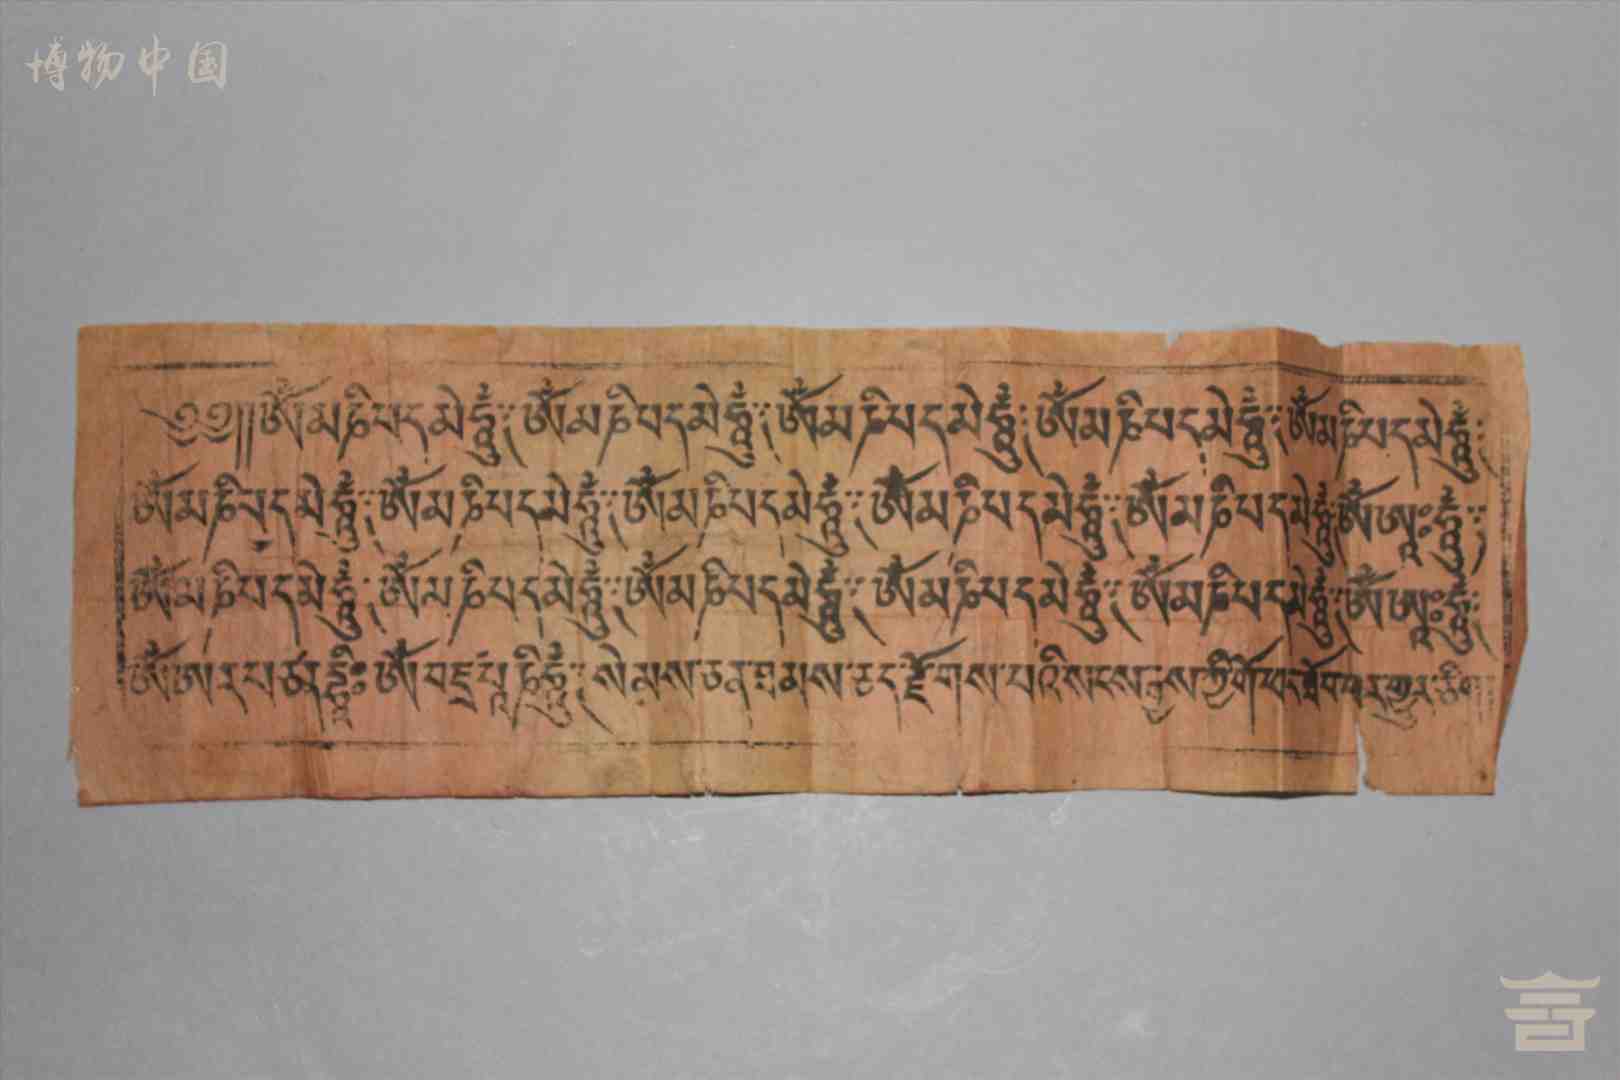 博物中国
༄༅།།ཨོཾ་མ་ཎི་པདྨེ་ཧཱུྃ༔ ཨོཾ་མ་ཎི་པདྨེ་ཧཱུྃ༔ ཨོཾ་མ་ཎི་པདྨེ་ཧཱུྃ༔ ཨོཾ་མ་ཎི་པདྨེ་ཧཱུྃ༔ ཨོཾ་མ་ཎི་པདྨེ་ཧཱུྃ༔
ཨོཾ་མ་ཎི་པདྨེ་ཧཱུྃ༔ ཨོཾ་མ་ཎི་པདྨེ་ཧཱུྃ༔ ཨོཾ་མ་ཎི་པདྨེ་ཧཱུྃ༔ ཨོཾ་མ་ཎི་པདྨེ་ཧཱུྃ༔ ཨོཾ་མ་ཎི་པདྨེ་ཧཱུྃ༔ ཨོཾ་ཨཱཿཧཱུྃ༔
ཨོཾ་མ་ཎི་པདྨེ་ཧཱུྃ༔ ཨོཾ་མ་ཎི་པདྨེ་ཧཱུྃ༔ ཨོཾ་མ་ཎི་པདྨེ་ཧཱུྃ༔ ཨོཾ་མ་ཎི་པདྨེ་ཧཱུྃ༔ ཨོཾ་མ་ཎི་པདྨེ་ཧཱུྃ༔ ཨོཾ་ཨཱཿཧཱུྃ༔
ཨོཾ་ཨ་ར་པ་ཙ་ན་དྷཱིཿ ཨོཾ་བཛྲ་པཱ་ཎི་ཧཱུྃ༔ སེམས་ཅན་ཐམས་ཅད་རྫོགས་པའི་སངས་རྒྱས་ཀྱི་གོ་འཕང་ཐོབ་པར་གྱུར་ཅིག